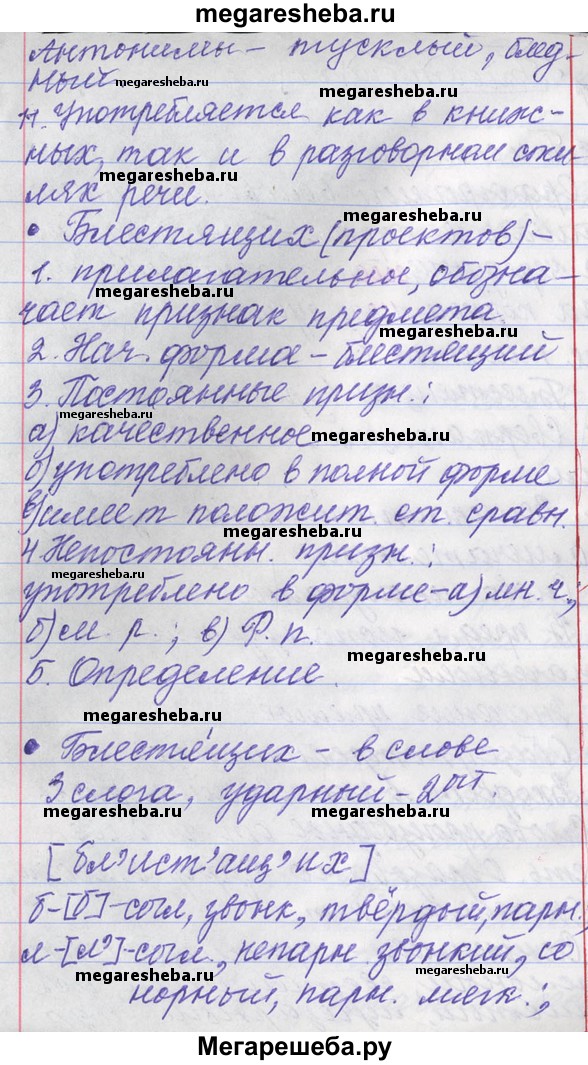 megaresheba.ru
Антонимы – тусклый, блед-
ный
megaresheba.ru
11. Употребляется как в книж-
ных, так и в разговорном сти
megaresheba.ru
лях речи.
megaresheba.ru
• Блестящих (проектов) –
1. прилагательное, обозна-
megaresheba.ru
чает признак предмета.
megaresheba.ru
2. Нач. форма – блестящий
3. Постоянные призн.:
megaresheba.ru
а) качественное
megaresheba.ru
б) употреблено в полной форме
в) имеет положит. ст. сравн.
megaresheba.ru
4. Непостоянн. призн.:
megaresheba.ru
употреблено в форме – а) мн. ч.;
б) м. р.; в) Р. п.
megaresheba.ru
5. Определение.
megaresheba.ru
• Блестящих – в слове
3 слога, ударный – 2ой.
megaresheba.ru megaresheba.ru
[бл’ист’ащ’их]
б – [б] – согл., звонк., твёрдый, парн.,
л – [л’] – согл., непарн. звонкий, со
megaresheba.ru
норный, парн. мягк.;
Мегарешеба.ру